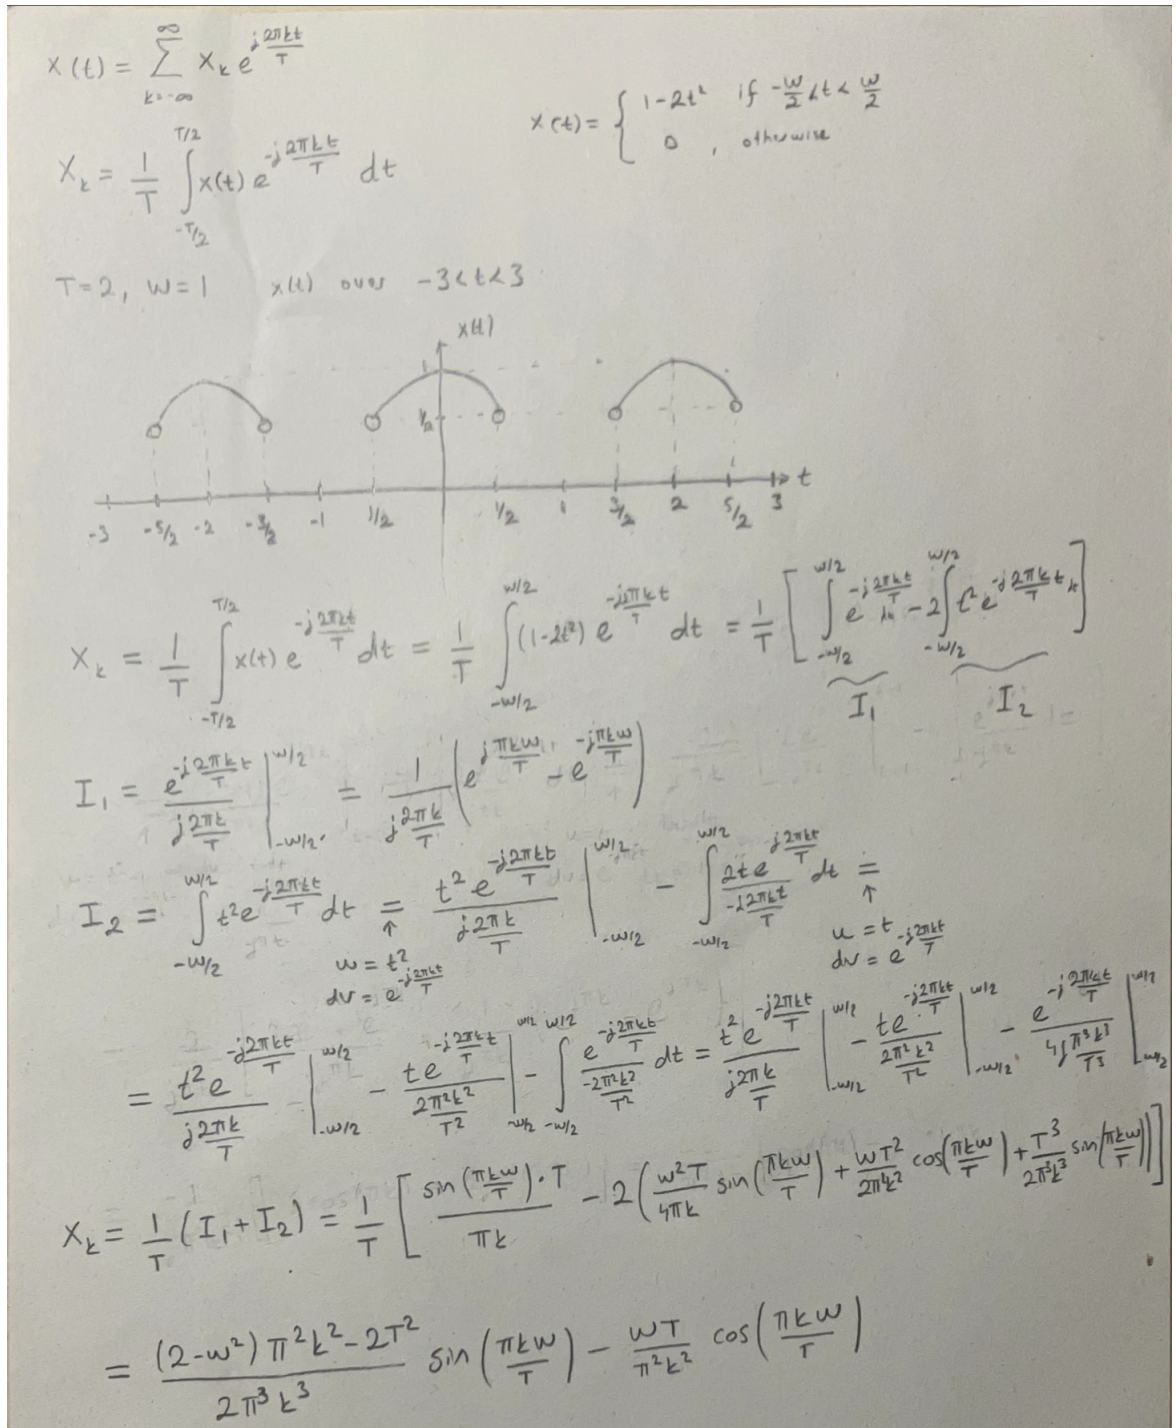 x(t) = ∑_{k=-∞}^{∞} X_k e^{j\frac{2πkt}{T}}
x(t) = { 1-2t² if -\frac{w}{2} < t < \frac{w}{2}
0 , otherwise
X_k = \frac{1}{T} ∫_{-T/2}^{T/2} x(t) e^{-j\frac{2πkt}{T}} dt
T=2, w=1 x(t) over -3<t<3
x(t)
1
1/2
t
-3 -5/2 -2 -3/2 -1 1/2 1/2 1 3/2 2 5/2 3
X_k = \frac{1}{T} ∫_{-T/2}^{T/2} x(t) e^{-j\frac{2πkt}{T}} dt = \frac{1}{T} ∫_{-w/2}^{w/2} (1-2t²) e^{-j\frac{2πk}{T}t} dt = \frac{1}{T} [ ∫_{-w/2}^{w/2} e^{-j\frac{2πkt}{T}} dt - 2 ∫_{-w/2}^{w/2} t² e^{-j\frac{2πkt}{T}} dt ]
I₁ I₂
I₁ = \frac{e^{-j\frac{2πk}{T}t}}{j\frac{2πk}{T}} |_{-w/2}^{w/2} = \frac{1}{j\frac{2πk}{T}} ( e^{j\frac{πkw}{T}} - e^{-j\frac{πkw}{T}} )
I₂ = ∫_{-w/2}^{w/2} t² e^{-j\frac{2πkt}{T}} dt = \frac{t² e^{-j\frac{2πkt}{T}}}{j\frac{2πk}{T}} |_{-w/2}^{w/2} - ∫_{-w/2}^{w/2} \frac{2t e^{-j\frac{2πkt}{T}}}{-j\frac{2πkt}{T}} dt =
u = t² u = t
dv = e^{-j\frac{2πkt}{T}} dv = e^{-j\frac{2πkt}{T}}
= \frac{t² e^{-j\frac{2πkt}{T}}}{j\frac{2πk}{T}} |_{-w/2}^{w/2} - \frac{t e^{-j\frac{2πkt}{T}}}{\frac{2π²k²}{T²}} |_{-w/2}^{w/2} - ∫_{-w/2}^{w/2} \frac{e^{-j\frac{2πkt}{T}}}{-\frac{2π²k²}{T²}} dt = \frac{t² e^{-j\frac{2πkt}{T}}}{j\frac{2πk}{T}} |_{-w/2}^{w/2} - \frac{t e^{-j\frac{2πkt}{T}}}{\frac{2π²k²}{T²}} |_{-w/2}^{w/2} - \frac{e^{-j\frac{2πkt}{T}}}{4j\frac{π³k³}{T³}} |_{-w/2}^{w/2}
X_k = \frac{1}{T} (I₁ + I₂) = \frac{1}{T} [ \frac{sin(\frac{πkw}{T})·T}{πk} - 2 ( \frac{w²T}{4πk} sin(\frac{πkw}{T}) + \frac{wT²}{2π²k²} cos(\frac{πkw}{T}) + \frac{T³}{2π³k³} sin(\frac{πkw}{T}) ) ]
= \frac{(2-w²)π²k²-2T²}{2π³k³} sin(\frac{πkw}{T}) - \frac{wT}{π²k²} cos(\frac{πkw}{T})